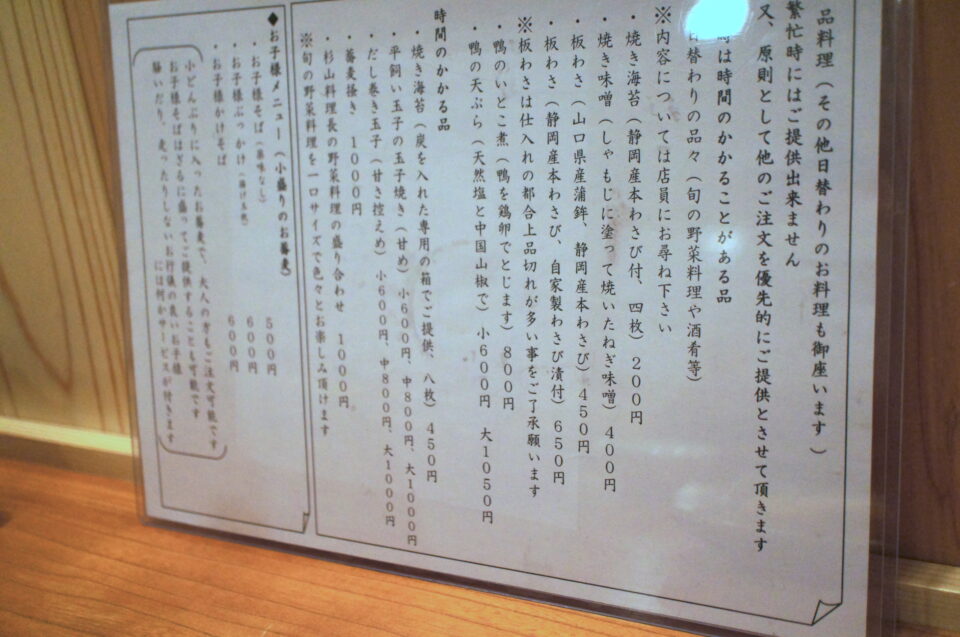 品料理（その他日替わりのお料理も御座います）
繁忙時にはご提供出来ません
又、原則として他のご注文を優先的にご提供とさせて頂きます
時は時間のかかることがある品
日替わりの品々（旬の野菜料理や酒肴等）
※内容については店員にお尋ね下さい
・焼き海苔（静岡産本わさび付、四枚）２００円
・焼き味噌（しゃもじに塗って焼いたねぎ味噌）４００円
・板わさ（山口県産蒲鉾、静岡産本わさび）４５０円
・板わさ（静岡産本わさび、自家製わさび漬付）６５０円
※板わさは仕入れの都合上品切れが多い事をご了承願います
・鴨のいとこ煮（鴨を鶏卵でとじます）８００円
・鴨の天ぷら（天然塩と中国山椒で）小６００円　大１０５０円
時間のかかる品
・焼き海苔（炭を入れた専用の箱でご提供、八枚）４５０円
・平飼い玉子の玉子焼き（甘め）小６００円、中８００円、大１０００円
・だし巻き玉子（甘さ控えめ）小６００円、中８００円、大１０００円
・蕎麦掻き　１０００円
・杉山料理長の野菜料理の盛り合わせ　１０００円
※旬の野菜料理を一口サイズで色々とお楽しみ頂けます
◆お子様メニュー（小盛りのお蕎麦）
・お子様そば（薬味なし）　５００円
・お子様ぶっかけ（揚げ玉他）　６００円
・お子様かけそば　６００円
小どんぶりに入ったお蕎麦で、大人の方もご注文可能です
お子様そばはざるに盛ってご提供することも可能です
騒いだり、走ったりしないお行儀の良いお子様
には何かサービスが付きます